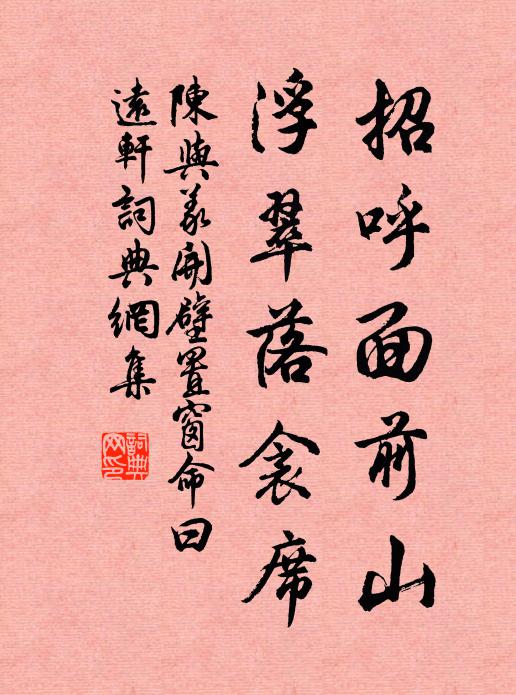 招呼面前山
浮翠落衾席
陳與義開壁置窗命曰
遠軒詞典網集
詞典
网印